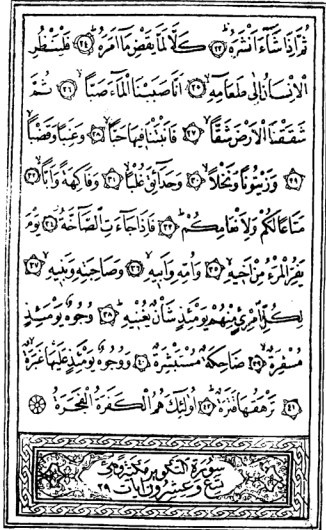 ثُمَّ اِذَا شَٓاءَ اَنْشَرَهُ ﴿٢٢﴾ كَلَّا لَمَّا يَقْضِ مَٓا اَمَرَهُ ﴿٢٣﴾ فَلْيَنْظُرِ
الْاِنْسَانُ اِلٰى طَعَامِهِ ﴿٢٤﴾ اَنَّا صَبَبْنَا الْمَٓاءَ صَبًّا ﴿٢٥﴾ ثُمَّ
شَقَقْنَا الْاَرْضَ شَقًّا ﴿٢٦﴾ فَاَنْبَتْنَا فِيهَا حَبًّا ﴿٢٧﴾ وَعِنَبًا وَقَضْبًا
﴿٢٨﴾ وَزَيْتُونًا وَنَخْلًا ﴿٢٩﴾ وَحَدَٓائِقَ غُلْبًا ﴿٣٠﴾ وَفَاكِهَةً وَاَبًّا ﴿٣١﴾
مَتَاعًا لَكُمْ وَلِاَنْعَامِكُمْ ﴿٣٢﴾ فَاِذَا جَٓاءَتِ الصَّٓاخَّةُ ﴿٣٣﴾ يَوْمَ
يَفِرُّ الْمَرْءُ مِنْ اَخِيهِ ﴿٣٤﴾ وَاُمِّهِ وَاَبِيهِ ﴿٣٥﴾ وَصَاحِبَتِهِ وَبَنِيهِ ﴿٣٦﴾
لِكُلِّ امْرِئٍ مِنْهُمْ يَوْمَئِذٍ شَأْنٌ يُغْنِيهِ ﴿٣٧﴾ وُجُوهٌ يَوْمَئِذٍ
مُسْفِرَةٌ ﴿٣٨﴾ ضَاحِكَةٌ مُسْتَبْشِرَةٌ ﴿٣٩﴾ وَوُجُوهٌ يَوْمَئِذٍ عَلَيْهَا غَبَرَةٌ
﴿٤٠﴾ تَرْهَقُهَا قَتَرَةٌ ﴿٤١﴾ اُو۬لٰٓئِكَ هُمُ الْكَفَرَةُ الْفَجَرَةُ
سورة التكوير مكية وهي
تسع وعشرون آيات ٢٩